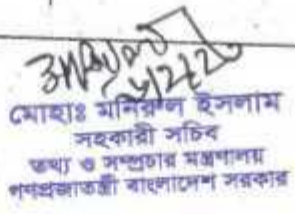 মোহাঃ মনিরুল ইসলাম
সহকারী সচিব
তথ্য ও সম্প্রচার মন্ত্রণালয়
গণপ্রজাতন্ত্রী বাংলাদেশ সরকার